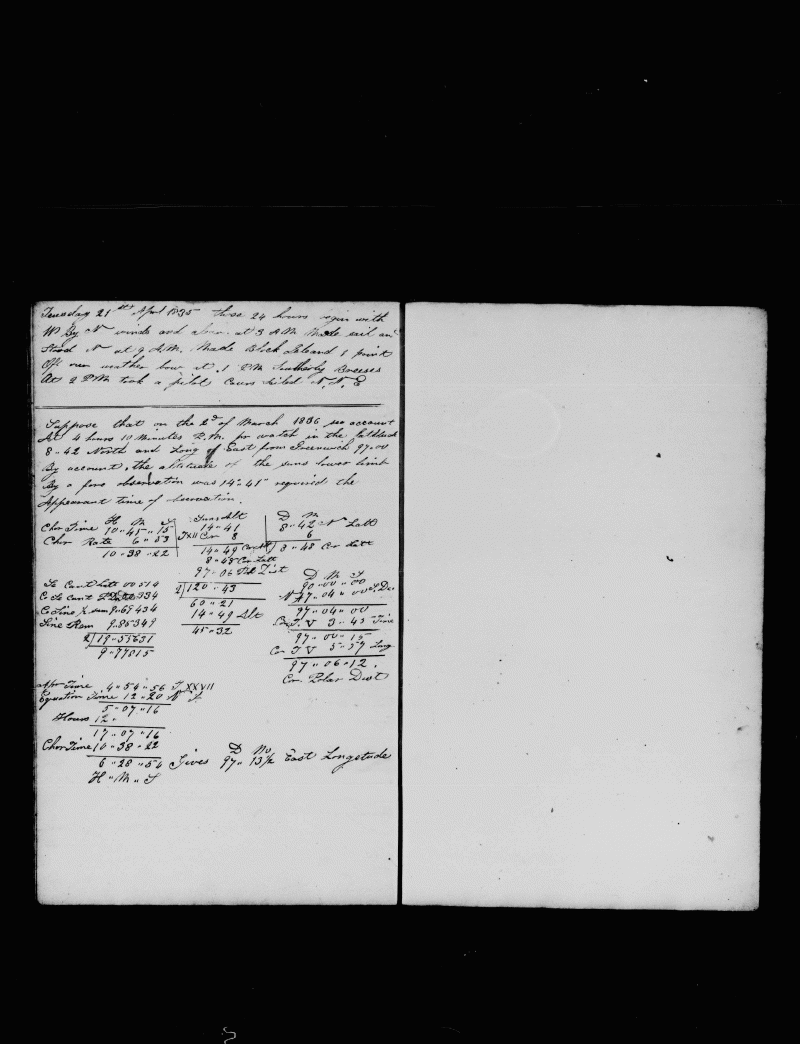 Tuesday 21st Aprl 1835 these 24 hours begin with
W By N winds and at 3 A M Made sail an
Stood N at 9 A.M. Made Block Island 1 point
Off our weather bow at 1 P.M Southerly Breeses
At 2 P.M took a pilot Cours N, N, E
Suppose that on the 2d of March 1836 sea account
At 4 hours 10 Minutes P.M. pr watch in the Latitude
8 " 42 North and Long of East from Greenwich 97 " 00
By account, the altitude of the suns lower limb
By a fore observation was 14 " 41 " required the
Appearant time of observation.
H M S
Chor Time 10 " 45 " 15
Chor Rate 6 " 53
10 " 38 " 22
Suns Alt
14 " 41
TXII Cor 8
14 " 49 Cor Alt
8 " 48 Cor Latt
97 " 06 Pol Dist
2)120 " 43
60 " 21
14 " 49 Alt
45 " 32
D M
8 " 42 N Latt
6
8 " 48 Cor Latt
Se Cant Latt 00514
Co Se Cant 334
Co Sine ½ sum 9.69434
Sine Rem 9.85349
2)19.55631
9.77815
D M S
90 " 00 " 00
7 " 04 " 00 S. Dec
97 " 04 " 00
Cor T. V 3 " 45 Time
97 " 00 " 15
Cor T V 5 " 57 Long
97 " 06 " 12.
Cor Polar Dist
Apr Time 4 " 54 " 56 T XXVII
Equation Time 12 " 20
5 " 07 " 16
Hours 12 "
17 " 07 " 16
Chor Time 10 " 38 " 22
6 " 28 " 54 Gives 97 " 13½ East Longetude
D Mo
H " M " S